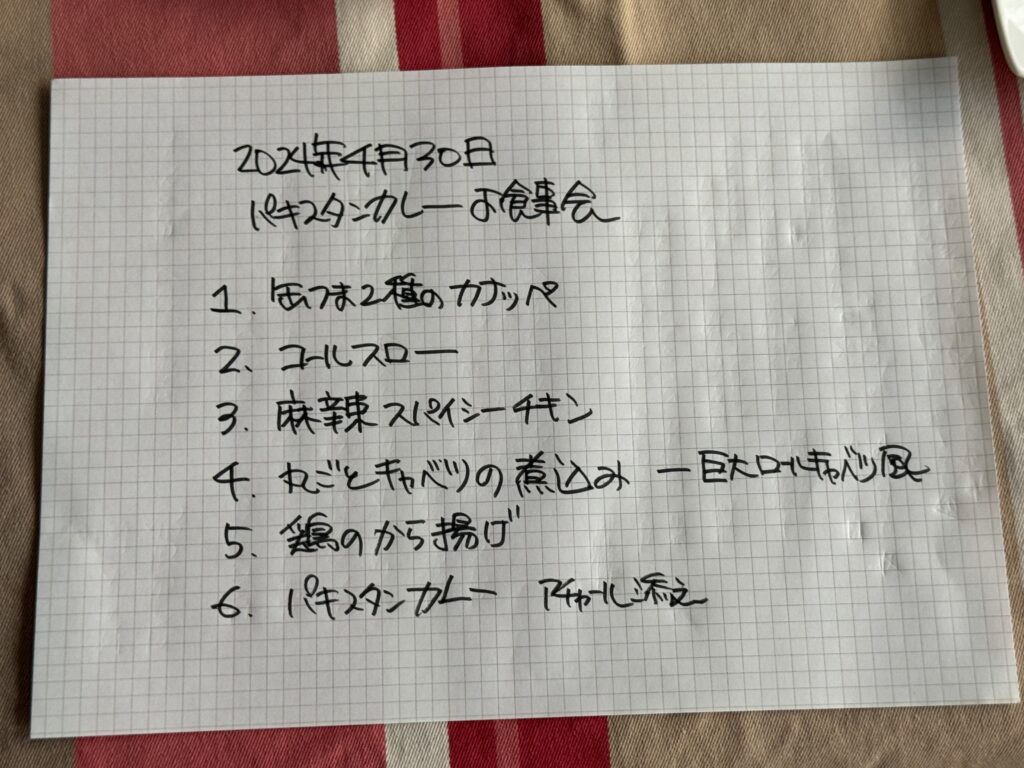 2024年4月30日
パキスタンカレーお食事会
1. 缶つま2種のカナッペ
2. コールスロー
3. 麻辣スパイシーチキン
4. 丸ごとキャベツの煮込み ー巨大ロールキャベツ風
5. 鶏のから揚げ
6. パキスタンカレー アチャール添え